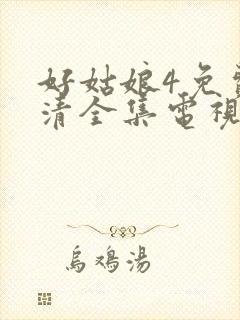 好姑娘4免
清全集電視
烏鴉湯